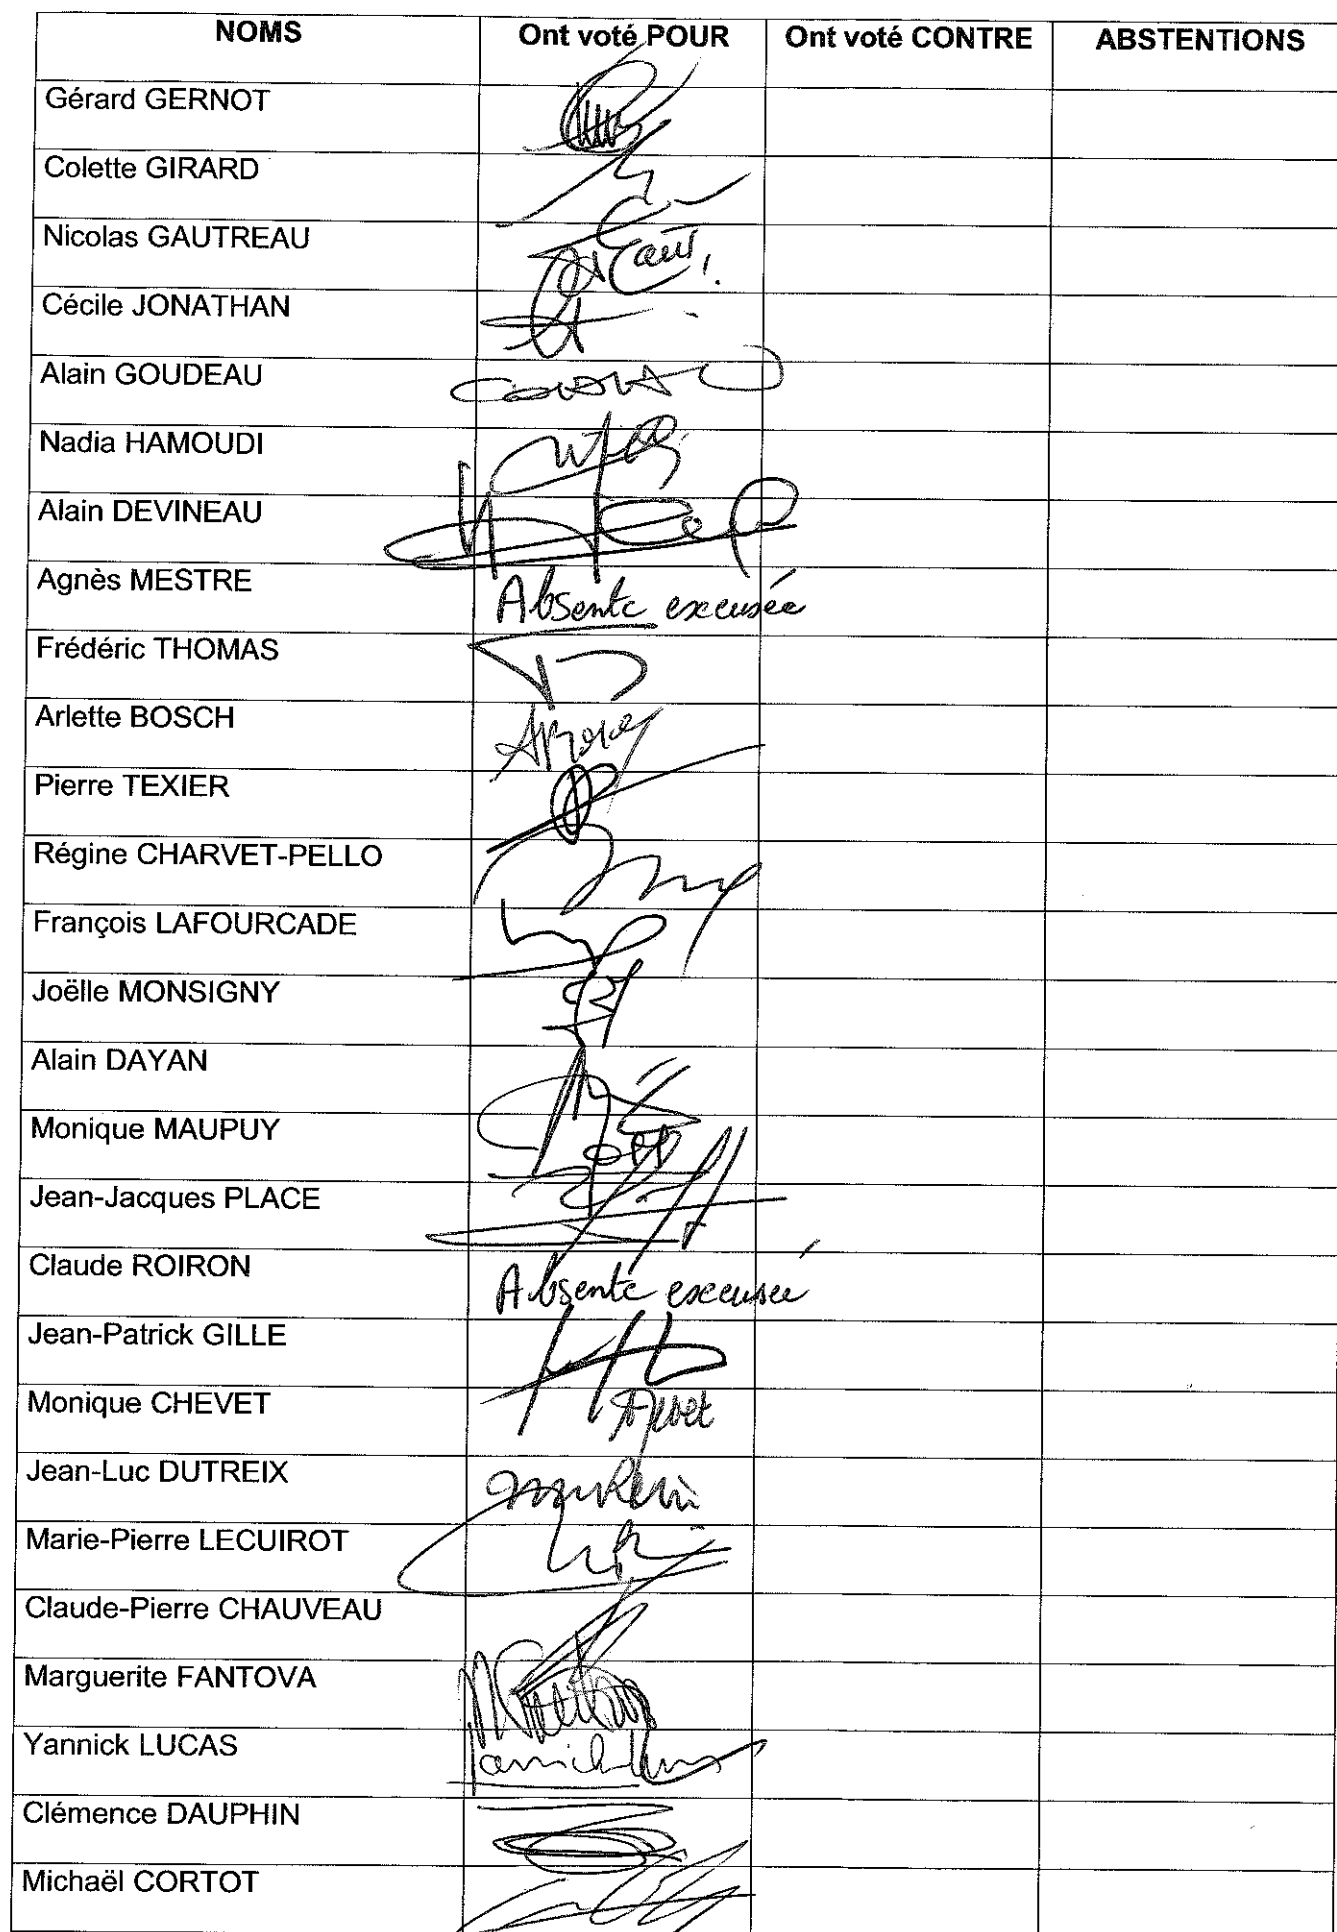 NOMS Ont voté POUR Ont voté CONTRE ABSTENTIONS
Gérard GERNOT
Colette GIRARD
Nicolas GAUTREAU
Cécile JONATHAN
Alain GOUDEAU
Nadia HAMOUDI
Alain DEVINEAU
Agnès MESTRE Absente excusée
Frédéric THOMAS
Arlette BOSCH
Pierre TEXIER
Régine CHARVET-PELLO
François LAFOURCADE
Joëlle MONSIGNY
Alain DAYAN
Monique MAUPUY
Jean-Jacques PLACE
Claude ROIRON Absente excusée
Jean-Patrick GILLE
Monique CHEVET
Jean-Luc DUTREIX
Marie-Pierre LECUIROT
Claude-Pierre CHAUVEAU
Marguerite FANTOVA
Yannick LUCAS
Clémence DAUPHIN
Michaël CORTOT